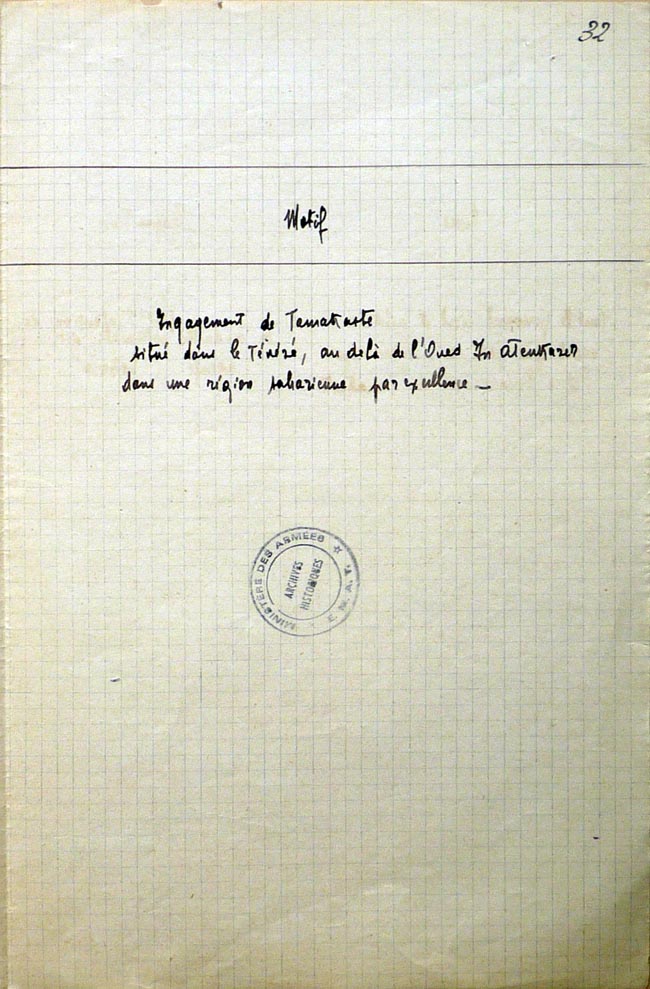 32
Motif
Engagement de Tamakaste
situé dans le Ténéré, au delà de l'Oued In Atenkarer
dans une région saharienne par excellence _
MINISTÈRE DES ARMÉES ★ E.M.A.
ARCHIVES
HISTORIQUES